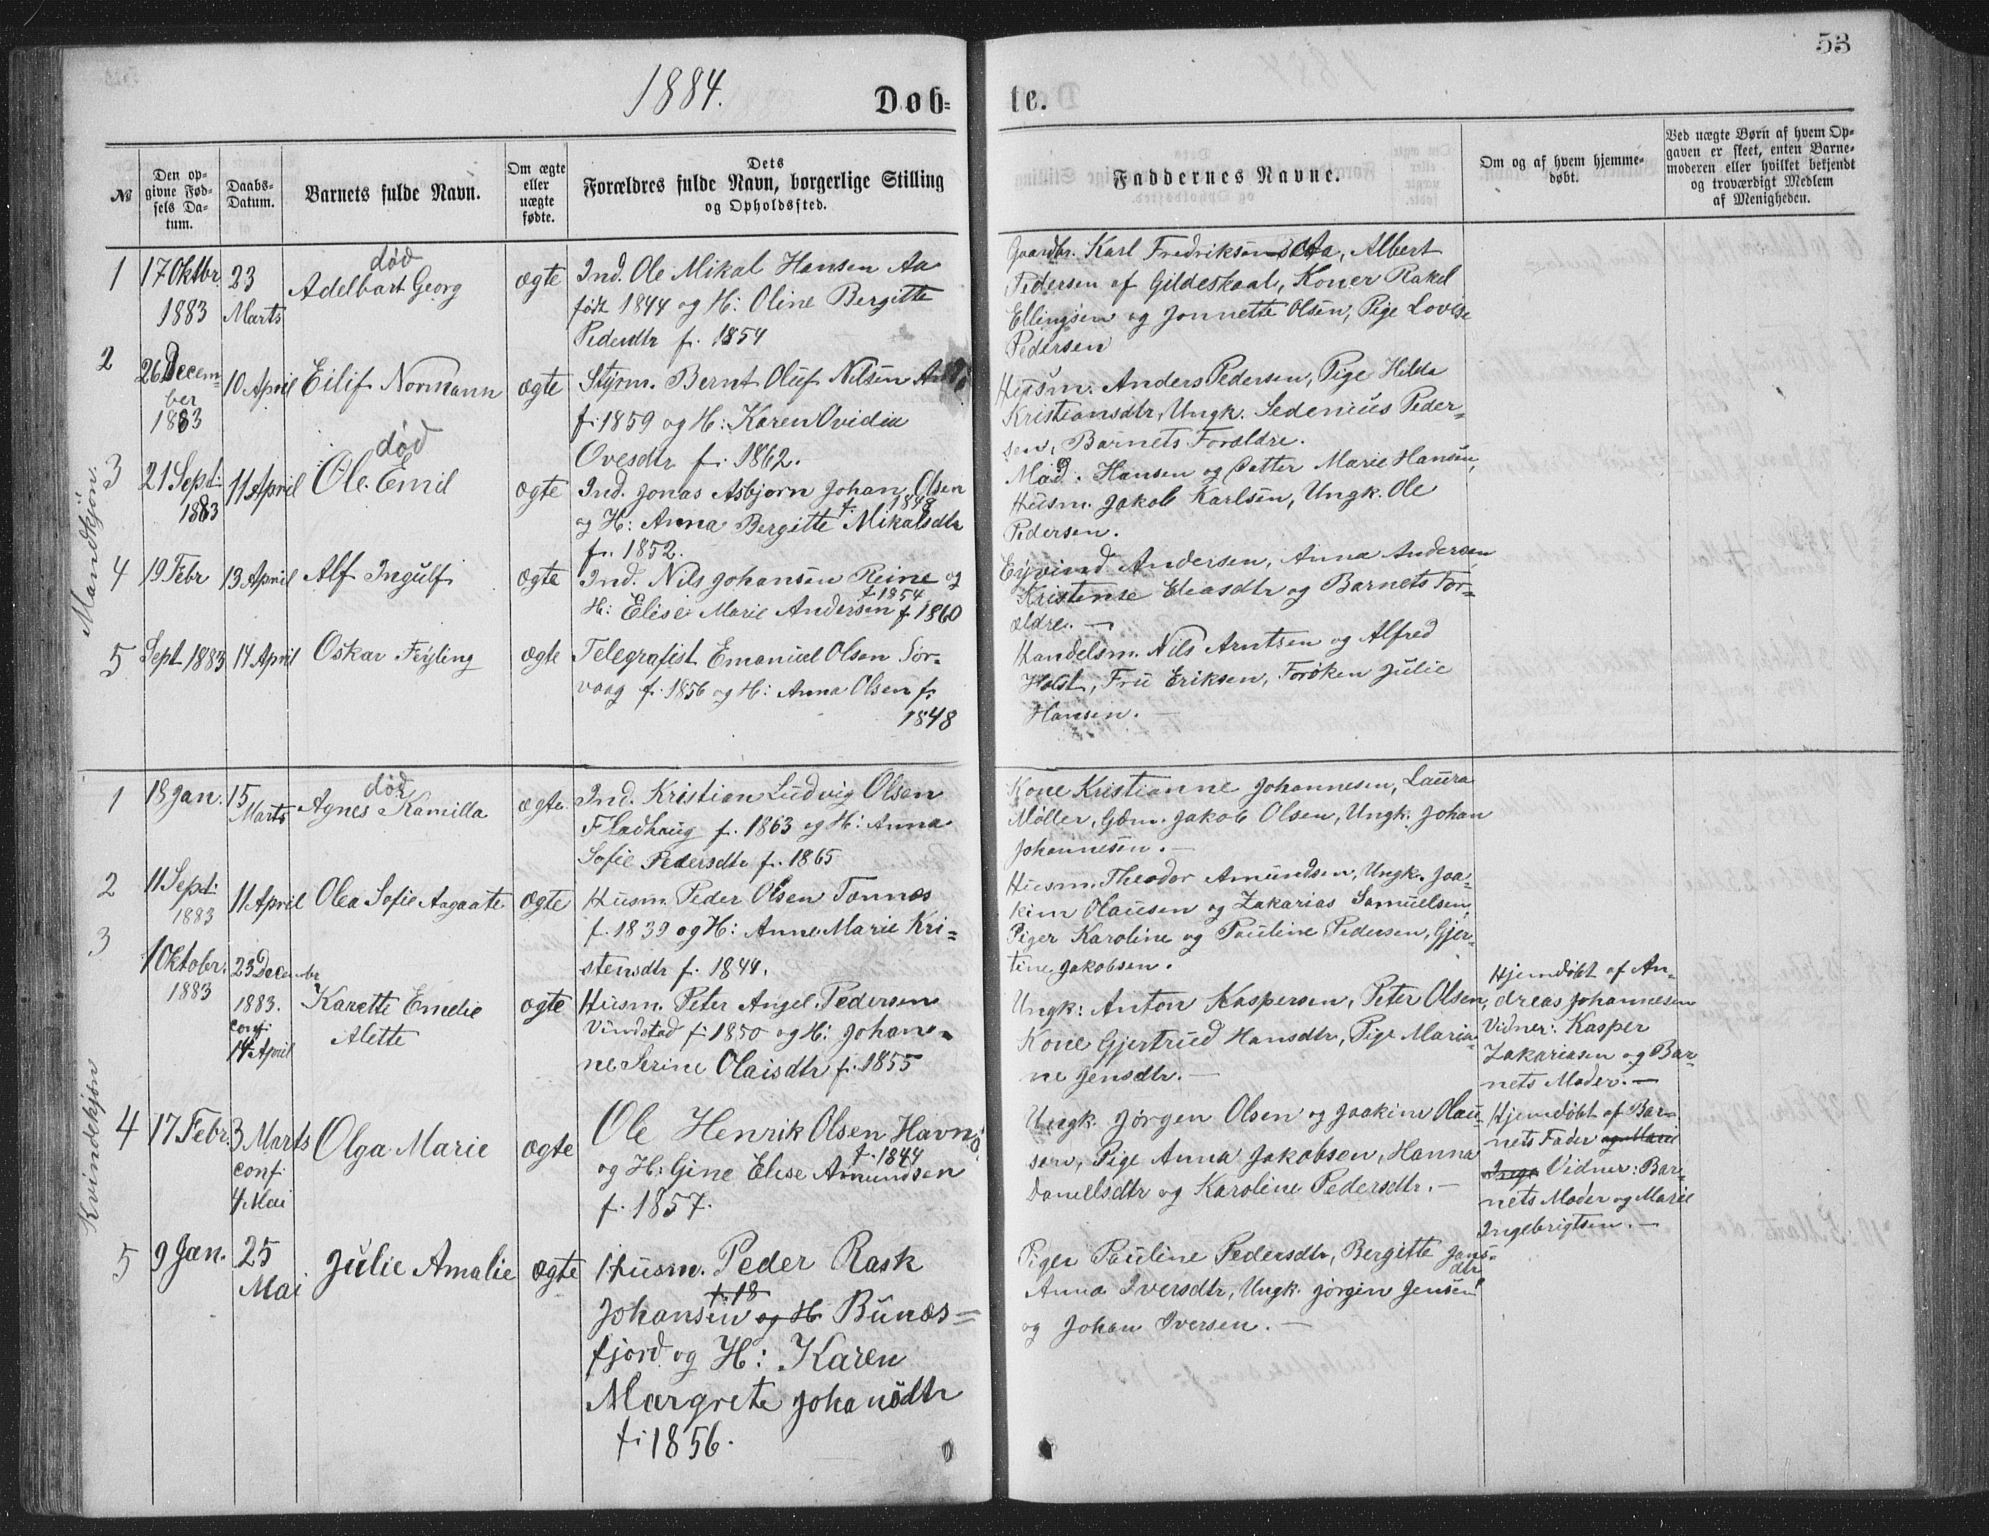 1884.
Døb=
te.
53
№
Den op-
givne Fød-
sels Da-
tum.
Daabs-
Datum.
Barnets fulde Navn.
Om ægte
eller
uægte
fødte.
Dets
Forældres fulde Navn, borgerlige Stilling
og Opholdssted.
Faddernes Navne.
Om og af hvem hjemme-
døbt.
Ved uægte Børn af hvem Op-
gaven er skeet, enten Barne-
moderen eller hvilket bekjendt
og troværdigt Medlem
af Menigheden.
Mandkjön.
1
17 Oktbr
1883
23
Marts
død
Adelbart Georg
ægte
Ind. Ole Mikal Hansen Aa
født 1844 og H: Oline Bergitte
Pedersdtr f. 1854
Gaardbr. Karl Fredriksen Aa, Albert
Pedersen af Gildeskaal, Koner Rakel
Ellingsen og Jonnette Olsen, Pige Lovise
Pedersen
2
26 Decem-
ber
1883
10 April
Eilif Normann
ægte
Styrm. Bernt Oluf Nilsen
f. 1859 og H: Karen Ovidia
Ovesdtr f. 1862.
Husm. Anders Pedersen, Pige Hilda
Kristiansdtr, Ungk. Sedenius Peder-
sen, Barnets Forældre.
3
21 Sept:
1883
11 April
død
Ole Emil
ægte
Ind. Jonas Asbjørn Johan Olsen
f. 1848
og H: Anna Bergitte Mikalsdtr
f. 1852.
Mad. Hansen og Datter Marie Hansen,
Husm. Jakob Karlsen, Ungk. Ole
Pedersen.
4
19 Febr
13 April
Alf Ingulf
ægte
Ind. Nils Johansen Reine og
f. 1854
H: Elise Marie Andersen f. 1860
Eyvind Andersen, Anna Andersen,
Kristense Eliasdtr og Barnets For-
ældre. —
5
Sept 1883
14 April
Oskar Feyling
ægte
Telegrafist Emanuel Olsen Sør-
vaag f. 1856 og H: Anna Olsen f.
1848
Handelsm. Nils Arntsen og Alfred
Holst, Fru Eriksen, Frøken Julie
Hansen. —
Kvindekjön
1
18 Jan.
15
Marts
død
Agnes Kamilla
ægte
Ind. Kristian Ludvig Olsen
Fladhaug f. 1863 og H: Anna
Sofie Pedersdtr f. 1865
Kone Kristianne Johannesen, Laura
Møller, Gæm. Jakob Olsen, Ungk. Johan
Johannesen. —
2
11 Sept:
1883
11 April
Olea Sofie Aagaate
ægte
Husm. Peder Olsen Tonnæs
f. 1839 og H: Anne Marie Kri-
stensdtr f. 1844.
Husm. Theodor Amundsen, Ungk. Joa-
kim Olausen og Zakarias Samuelsen,
Piger Karoline og Pauline Pedersen, Gjer-
tine Jakobsen.
3
1 Oktober
1883
23 December
1883.
conf.
14 April
Karette Emelie
Alette
ægte
Husm. Peter Angel Pedersen
Vindstad f. 1850 og H: Johan-
ne Serine Olaisdtr f. 1855
Ungk: Anton Kaspersen, Peter Olsen,
Kone Gjertrud Hansdtr, Pige Maria-
ne Jensdtr. —
Hjemdøbt af An-
dreas Johannesen
Vidner: Kasper
Zakariasen og Bar-
nets Moder. —
4
17 Febr.
3 Marts
conf.
4 Mai
Olga Marie
ægte
Ole Henrik Olsen Havn
f. 1844
og H: Gine Elise Amundsen
f. 1857.
Ungk. Jørgen Olsen og Joakim Olau-
sen, Pige Anna Jakobsen, Hanna
Danielsdtr og Karoline Pedersdtr. —
Hjemdøbt af Bar-
nets Fader og Marie
Inge Vidner: Bar-
nets Moder og Marie
Ingebrigtsen. —
5
9 Jan.
25
Mai
Julie Amalie
ægte
Husm. Peder Rask
f. 18
Johansen og H Bunæs=
fjord og H: Karen
Margrete Johansdtr
f. 1856.
Piger Pauline Pedersdtr, Bergitte Jans-
dtr
Anna Iversdtr, Ungk. Jørgen Jensen
og Johan Iversen. —